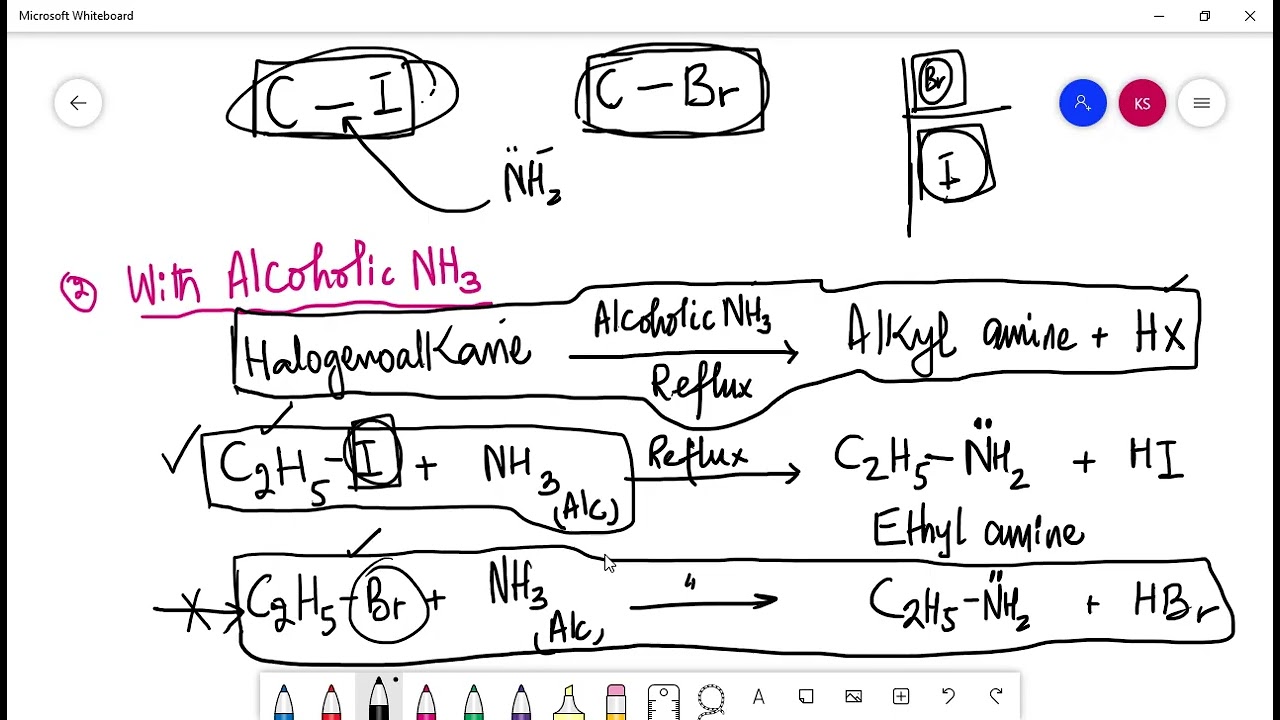 Microsoft Whiteboard
C – I
C – Br
Br
I
N̈H₂⁻
KS
② With Alcoholic NH₃
Halogenoalkane Alcoholic NH₃ Reflux → Alkyl amine + HX
✓ C₂H₅–I + NH₃ (Alc) Reflux → C₂H₅–N̈H₂ + HI
Ethyl amine
C₂H₅–Br + NH₃ (Alc) " → C₂H₅–N̈H₂ + HBr
A